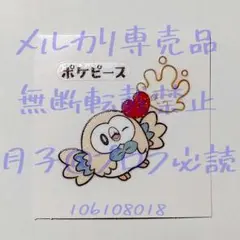 メルカリ専売品
ポケピース
無断転載禁止
月子のプロフ必読
106108018